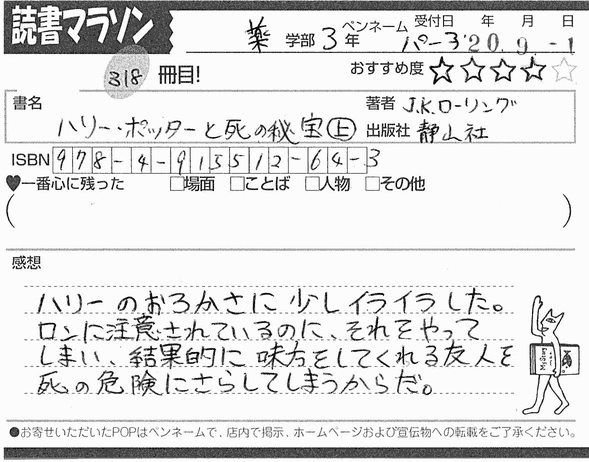 読書マラソン
薬 学部 3 年 ペンネーム パーヲ 受付日 年 月 日 '20.9.-1
318 冊目! おすすめ度 ☆☆☆☆☆
書名 ハリー・ポッターと死の秘宝㊤
著者 J.K.ローリング
出版社 静山社
ISBN 978-4-915512-64-3
♥一番心に残った □場面 □ことば □人物 □その他
( )
感想
ハリーのおろかさに少しイライラした。
ロンに注意されているのに、それをやって
しまい、結果的に味方をしてくれる友人を
死の危険にさらしてしまうからだ。
●お寄せいただいたPOPはペンネームで、店内で掲示、ホームページおよび宣伝物への転載をご了承ください。